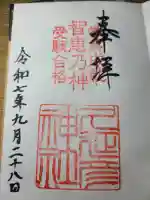 奉拝
智恵乃神
受験合格
令和七年九月二十八日